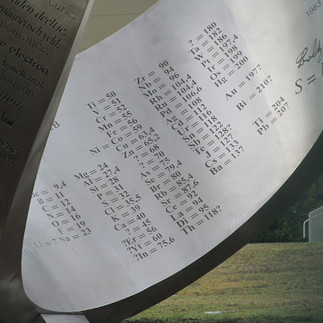 1905
S =
e electron
? = 180
Ta = 182
W = 186
Pt = 197,4
Os = 199
Hg = 200
Au = 197?
Bi = 210?
Tl = 204
Pb = 207
Zr = 90
Nb = 94
Mo = 96
Rh = 104,4
Ru = 104,4
Pd = 106,6
Ag = 108
Cd = 112
Ur = 116
Sn = 118
Sb = 122
Te = 128?
J = 127
Cs = 133
Ba = 137
Ti = 50
V = 51
Cr = 52
Mn = 55
Fe = 56
Ni = Co = 59
Cu = 63,4
Zn = 65,2
? = 68
? = 70
As = 75
Se = 79,4
Br = 80
Rb = 85,4
Sr = 87,6
Ce = 92
La = 94
Di = 95
Th = 118?
Mg = 24
Al = 27,4
Si = 28
P = 31
S = 32
Cl = 35,5
K = 39
Ca = 40
? = 45
?Er = 56
?Yt = 60
?In = 75,6
= 9,4
B = 11
C = 12
N = 14
O = 16
F = 19
Na = 23